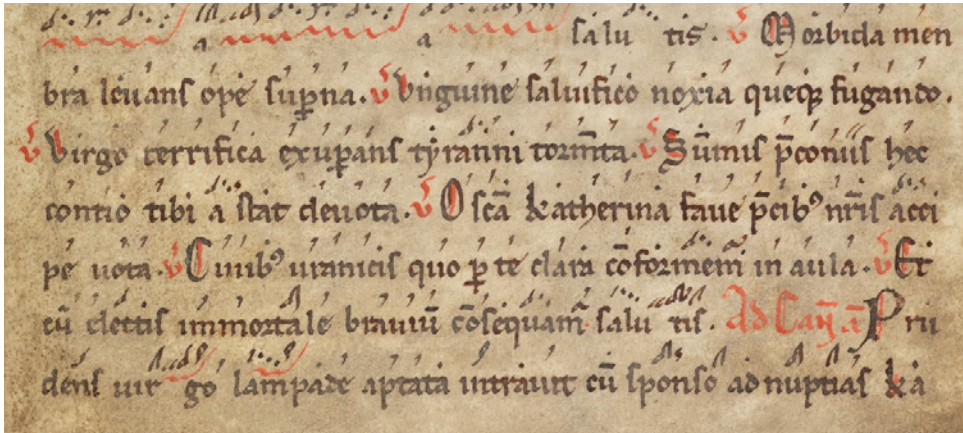 a a salu tis. V Morbida men
bra levans ope sup̱na. V Vnguine saluifico noxia queq̱ fugando.
V Virgo terrifica exup̱ans tyranni torm̄ta. V Sūmis p̄coniis hec
contio tibi a stat deuota. V O sc̄a katherina faue p̄cibꝰ nr̄is acci
pe uota. V Ciuibꝰ uranicis quo p̱ te clara cōformem̄ in aula. V Et
cū electis immortale brauiū cōsequam̄ salu tis. Ad Cāt̄ ā Pru
dens uir go lampade aptata intrauit cū sponso ad nuptias ka